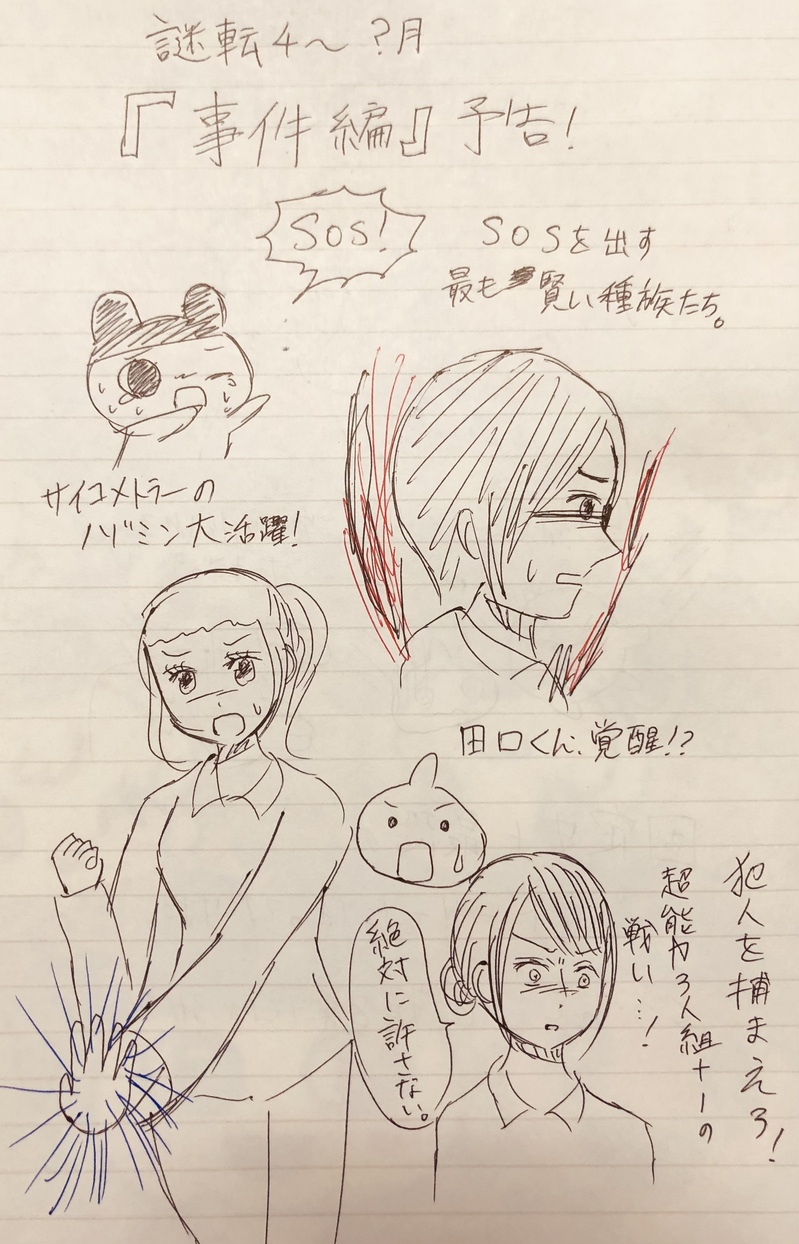 謎転4～?月
『事件編』予告!
SOS!
SOSを出す
最も賢い種族たち。
サイコメトラーの
ノゾミン大活躍!
田口くん、覚醒!?
犯人を捕まえろ!
超能力3人組+1の
戦い…!
絶対に許さない。